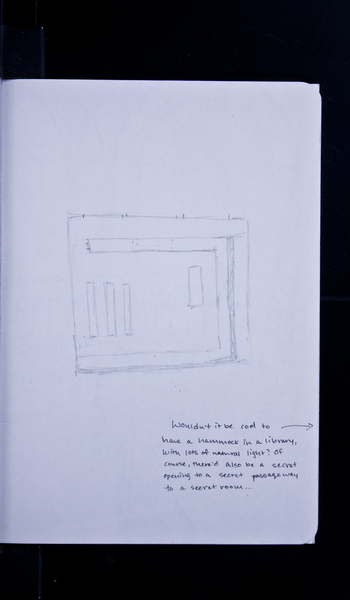 Wouldn't it be cool to
have a hammock in a library,
with lots of natural light? Of
course, there'd also be a secret
opening to a secret passageway
to a secret room...